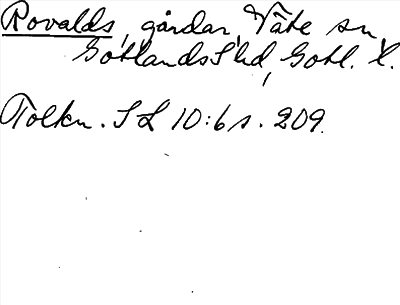 Rovalds, gårdar, Väte sn,
Gotlands S hd, Gotl. l.
Tolkn. S L 10:6 s. 209.